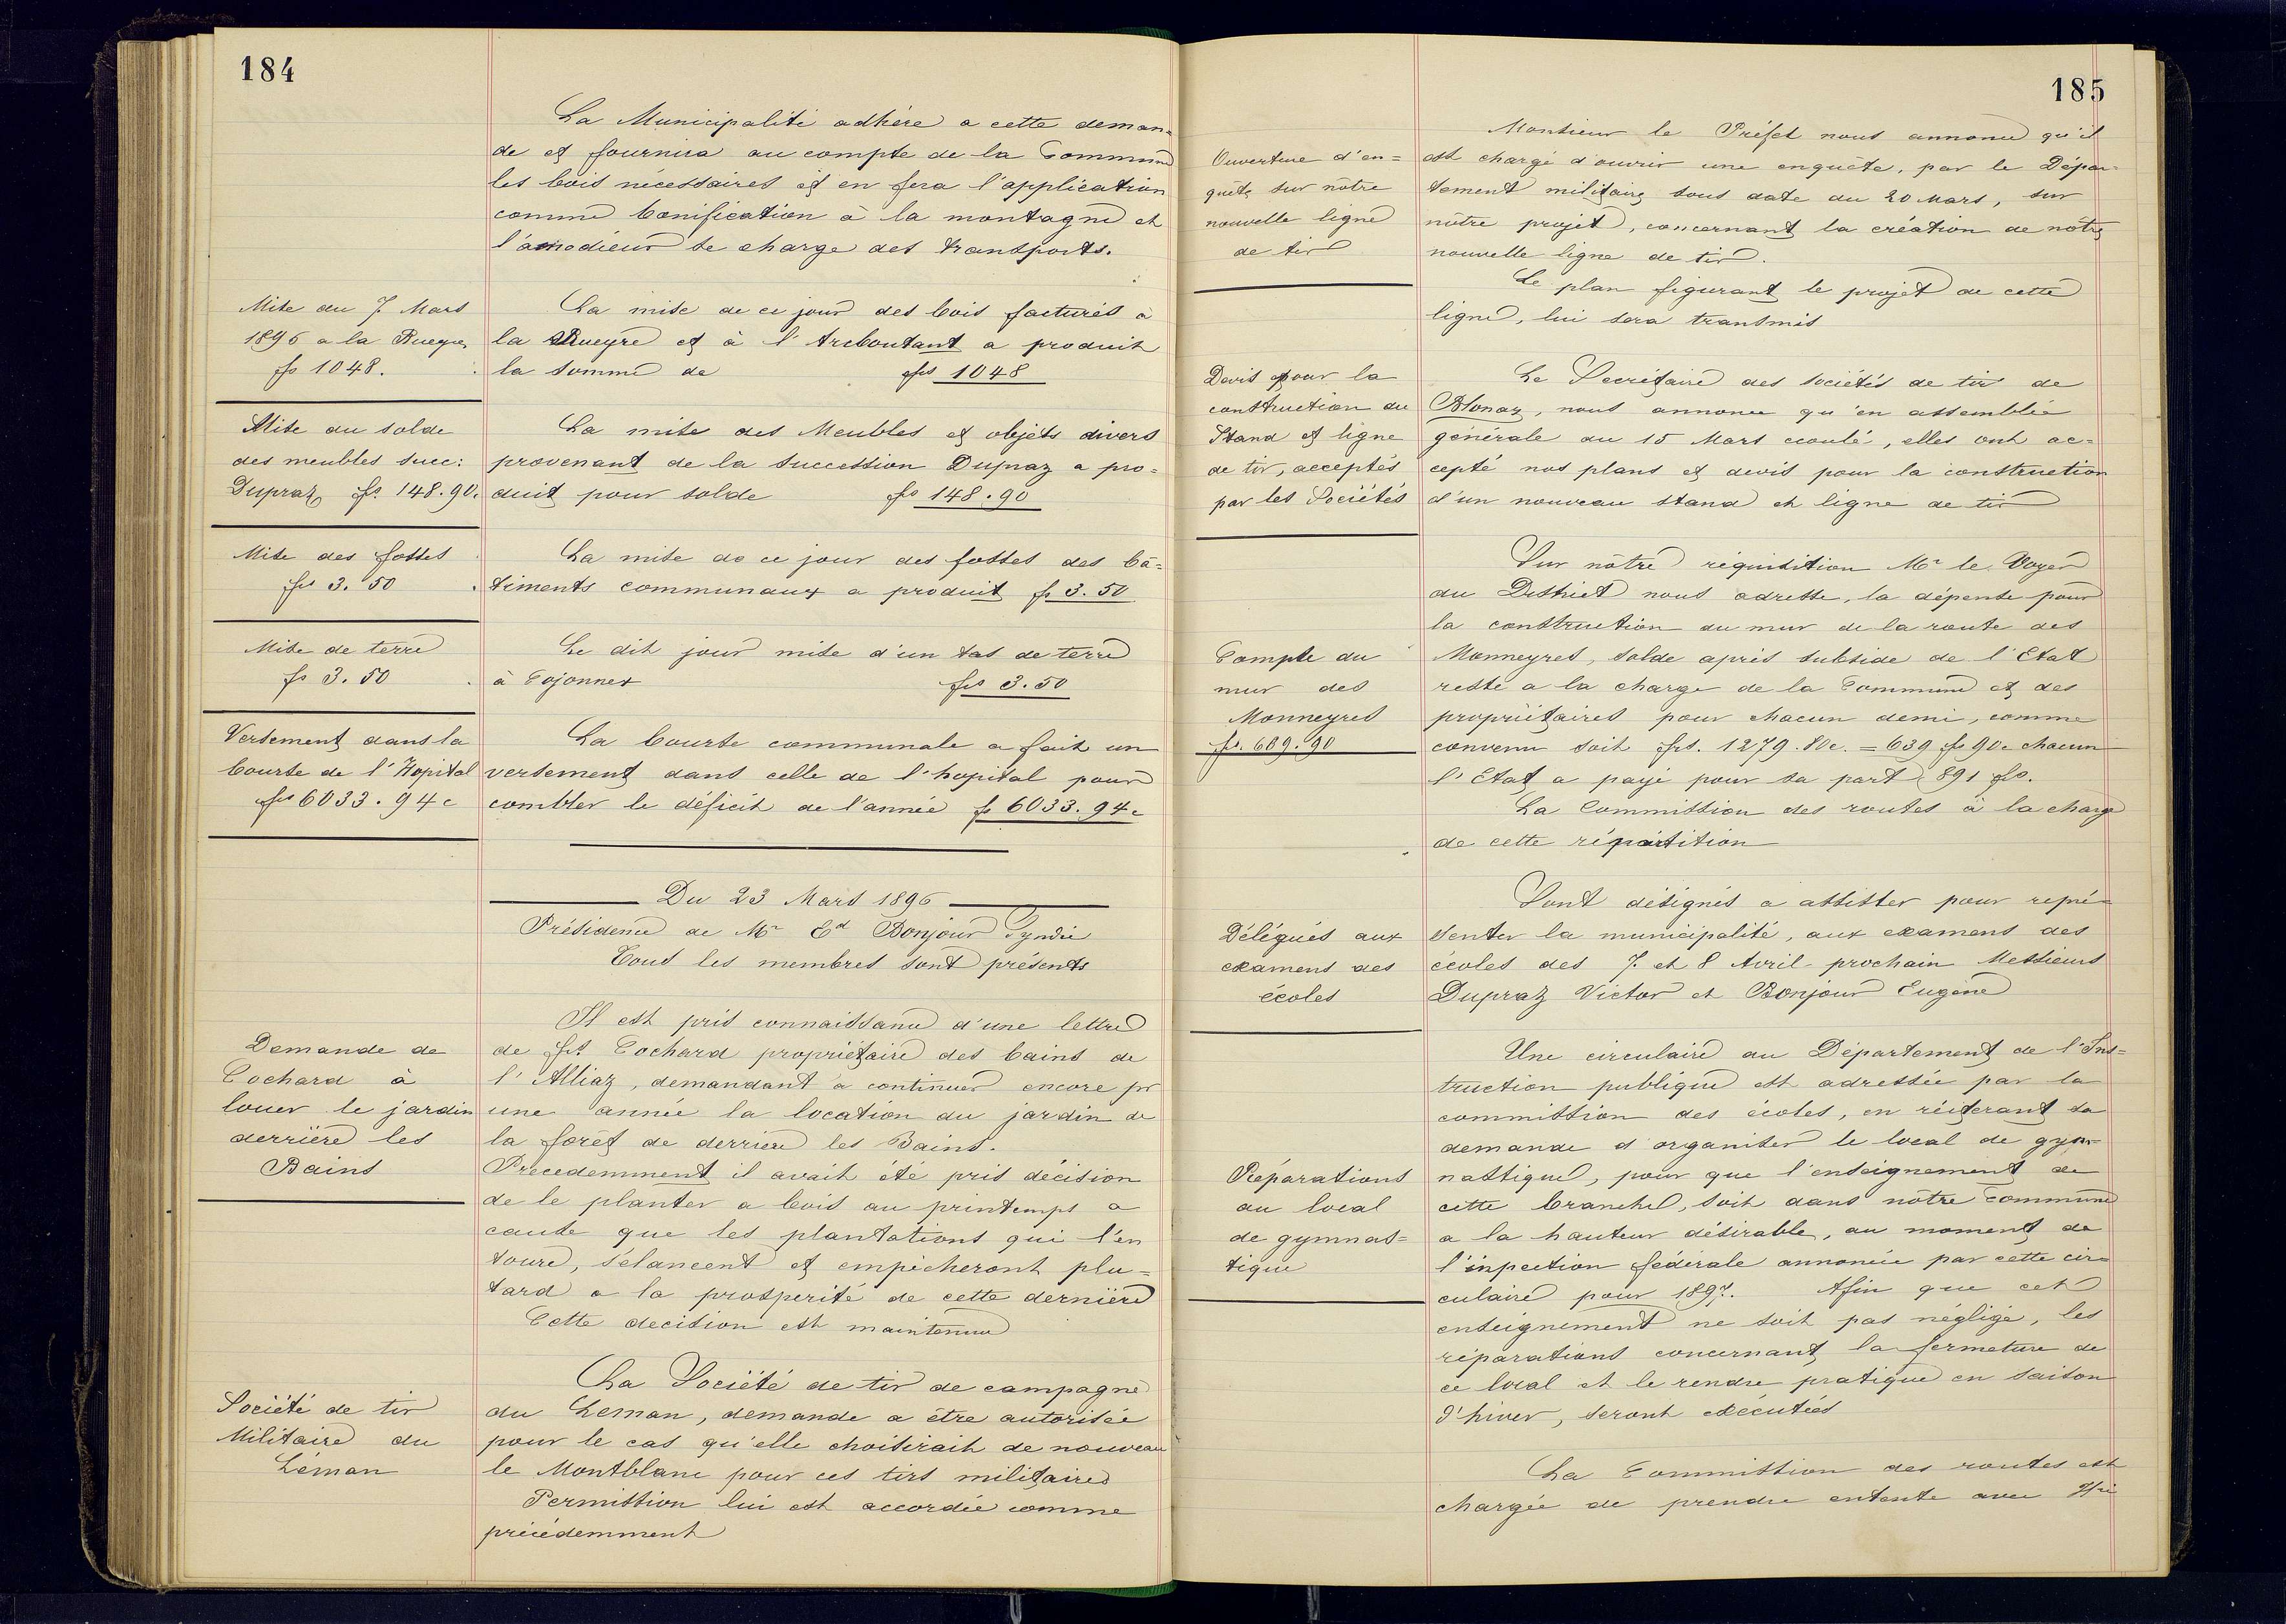 184
La Municipalité adhère a cette deman=
de et fournira au compte de la Commune
les bois nécessaires et en fera l'application
comme bonification à la montagne et
l'amodieur se charge des transports.
Mise du 7 Mars
1896 a la Rueyre
fs 1048.
La mise de ce jour des bois facturés à
la Rueyre et à l'Arcboutant a produit
la somme de frs 1048
Mise du solde
des meubles succ:
Dupraz fs 148.90.
La mise des Meubles et objèts divers
provenant de la succession Dupraz a pro=
duit pour solde fs 148.90
Mise des fosses
frs 3.50
La mise de ce jour des fosses des bâ=
timents communaux a produit fs 3.50
Mise de terre
fs 3.50
Le dit jour mise d'un tas de terre
à Cojonnex frs 3.50
Versement dans la
bourse de l'Hopital
frs 6033.94c
La bourse communale a fait un
versement dans celle de l'hopital pour
combler le déficit de l'année fs 6033.94c
Du 23 Mars 1896
Présidence de Mr Ed Bonjour Syndic
Tous les membres sont présents
Demande de
Cochard à
louer le jardin
derrière les
Bains
Il est pris connaissance d'une lettre
de Cochard propriétaire des bains de
l'Alliaz, demandant a continuer encore pr
une année la location du jardin de
la forêt de derrière les Bains.
Precedemment il avait été pris décision
de le planter a bois au printemps a
cause que les plantations qui l'en
toure, s'élancent et empêcheront plu=
tard a la prosperité de cette dernière
Cette decision est maintenue
Société de tir
Militaire du
Léman
La Société de tir de campagne
du Leman, demande a être autorisée
pour le cas qu'elle choisirait de nouveau
le Montblanc pour ces tirs militaires
Permission lui est accordée comme
précédemment
185
Ouverture d'en=
quête sur nôtre
nouvelle ligne
de tir
Monsieur le Préfet nous annonce qu'il
est chargé d'ouvrir une enquête, par le Dépar=
tement militaire sous date du 20 Mars, sur
nôtre projet, concernant la création de nôtre
nouvelle ligne de tir.
Le plan figurant le projet de cette
ligne, lui sera transmis
Devis pour la
construction du
Stand et ligne
de tir, acceptés
par les Sociétés
Le Secrétaire des sociétés de tir de
Blonay, nous annonce qu'en assemblée
générale du 15 Mars ecoulé, elles ont ac=
cepté nos plans et devis pour la construction
d'un nouveau stand et ligne de tir
Compte du
mur des
Monneyres
fr. 689.90
Sur nôtre réquisition Mr le Voyer
du District nous adresse, la dépense pour
la construction du mur de la route des
Monneyres, solde après subside de l'Etat
reste a la charge de la Commune et des
propriétaires pour chacun demi, comme
convenu soit frs. 1279.80c. = 639 fs 90c chacun
l'Etat a payé pour sa part 891 fs.
La Commission des routes à la charge
de cette répartition
Délégués aux
examens des
écoles
Sont désignés a assister pour repré=
senter la municipalité, aux examens des
écoles des 7 et 8 Avril prochain Messieurs
Dupraz Victor et Bonjour Eugène
Réparations
au local
de gymnas=
tique
Une circulaire du Département de l'Ins=
truction publique est adressée par la
commission des écoles, en réiterant sa
demande d'organiser le local de gym=
nastique, pour que l'enseignement de
cette branche, soit dans nôtre commune
a la hauteur désirable, au moment de
l'inpection fedérale annoncée par cette cir=
culaire pour 1897. Afin que cet
enseignement ne soit pas négligé, les
réparations concernant la fermeture de
ce local et le rendre pratique en saison
d'hiver, seront éxécutées
La Commission des routes est
chargée de prendre entente avec